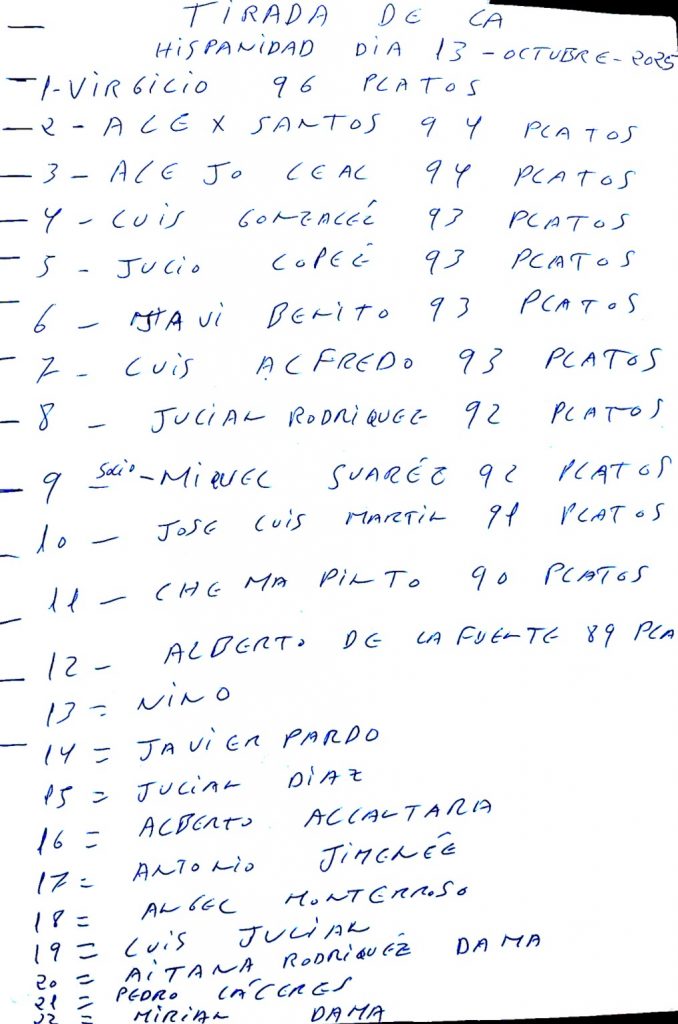 TIRADA DE LA
HISPANIDAD DIA 13-OCTUBRE-2025
1-VIRGILIO 96 PLATOS
2-ALEX SANTOS 94 PLATOS
3-ALEJO LEAL 94 PLATOS
4-LUIS GONZALEZ 93 PLATOS
5-JULIO LOPEZ 93 PLATOS
6-JAVI BENITO 93 PLATOS
7-LUIS ALFREDO 93 PLATOS
8-JULIAN RODRIQUEZ 92 PLATOS
9 socio-MIQUEL SUARÉZ 92 PLATOS
10-JOSE LUIS MARTIN 91 PLATOS
11-CHEMA PINTO 90 PLATOS
12-ALBERTO DE LA FUENTE 89 PLA
13=NINO
14=JAVIER PARDO
15=JULIAN DIAZ
16=ALBERTO ALCALTARA
17=ANTONIO JIMENÉZ
18=ANGEL MONTERROSO
19=LUIS JULIAN
20=AITANA RODRIQUEZ DAMA
21=PEDRO CÁCERES
22=MIRIAN DAMA